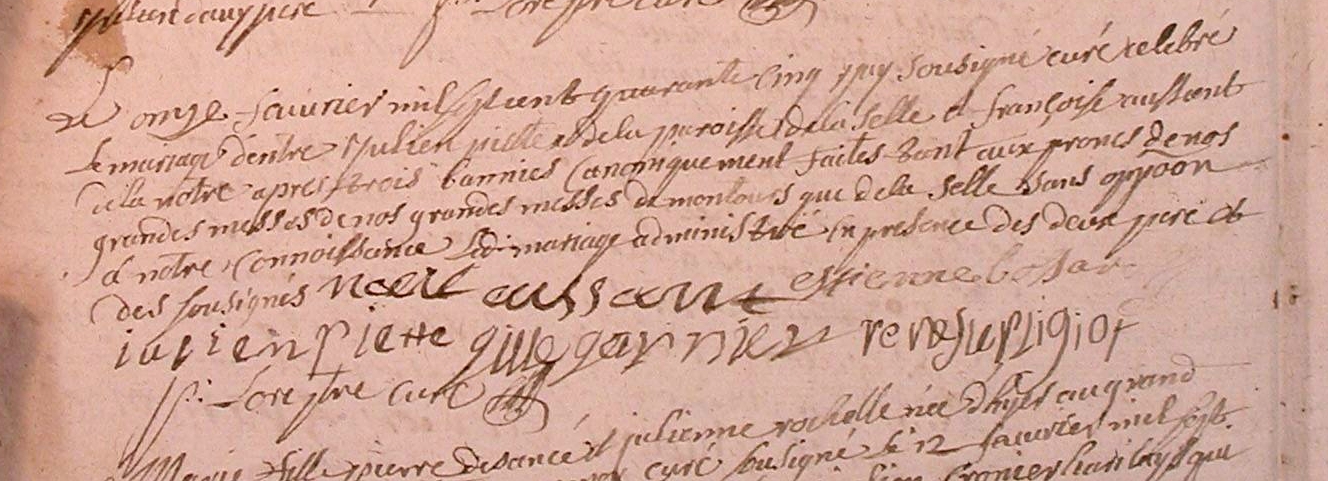 Le onze fauvrier mil sept cent quarante cinq j'ay sousigné curé celebré
le mariage d'entre Julien piette de la paroisse de la Selle et françoise aussant
de la notre apres trois bannies canoniquement faites tant aux prones de nos
grandes messes de nos grandes messes de montours que de la Selle sans oppoon
a notre connoissance Led. mariage administré en presence des deux pere et
des sousignés noell aussant estienne bossar
iulien Piette gille garnier rene
p. Lorestre curé
Marie fille pierre et julienne rochelle née d'hyer au grand
curé sousigné le 12 fauvrier mil sept
qui